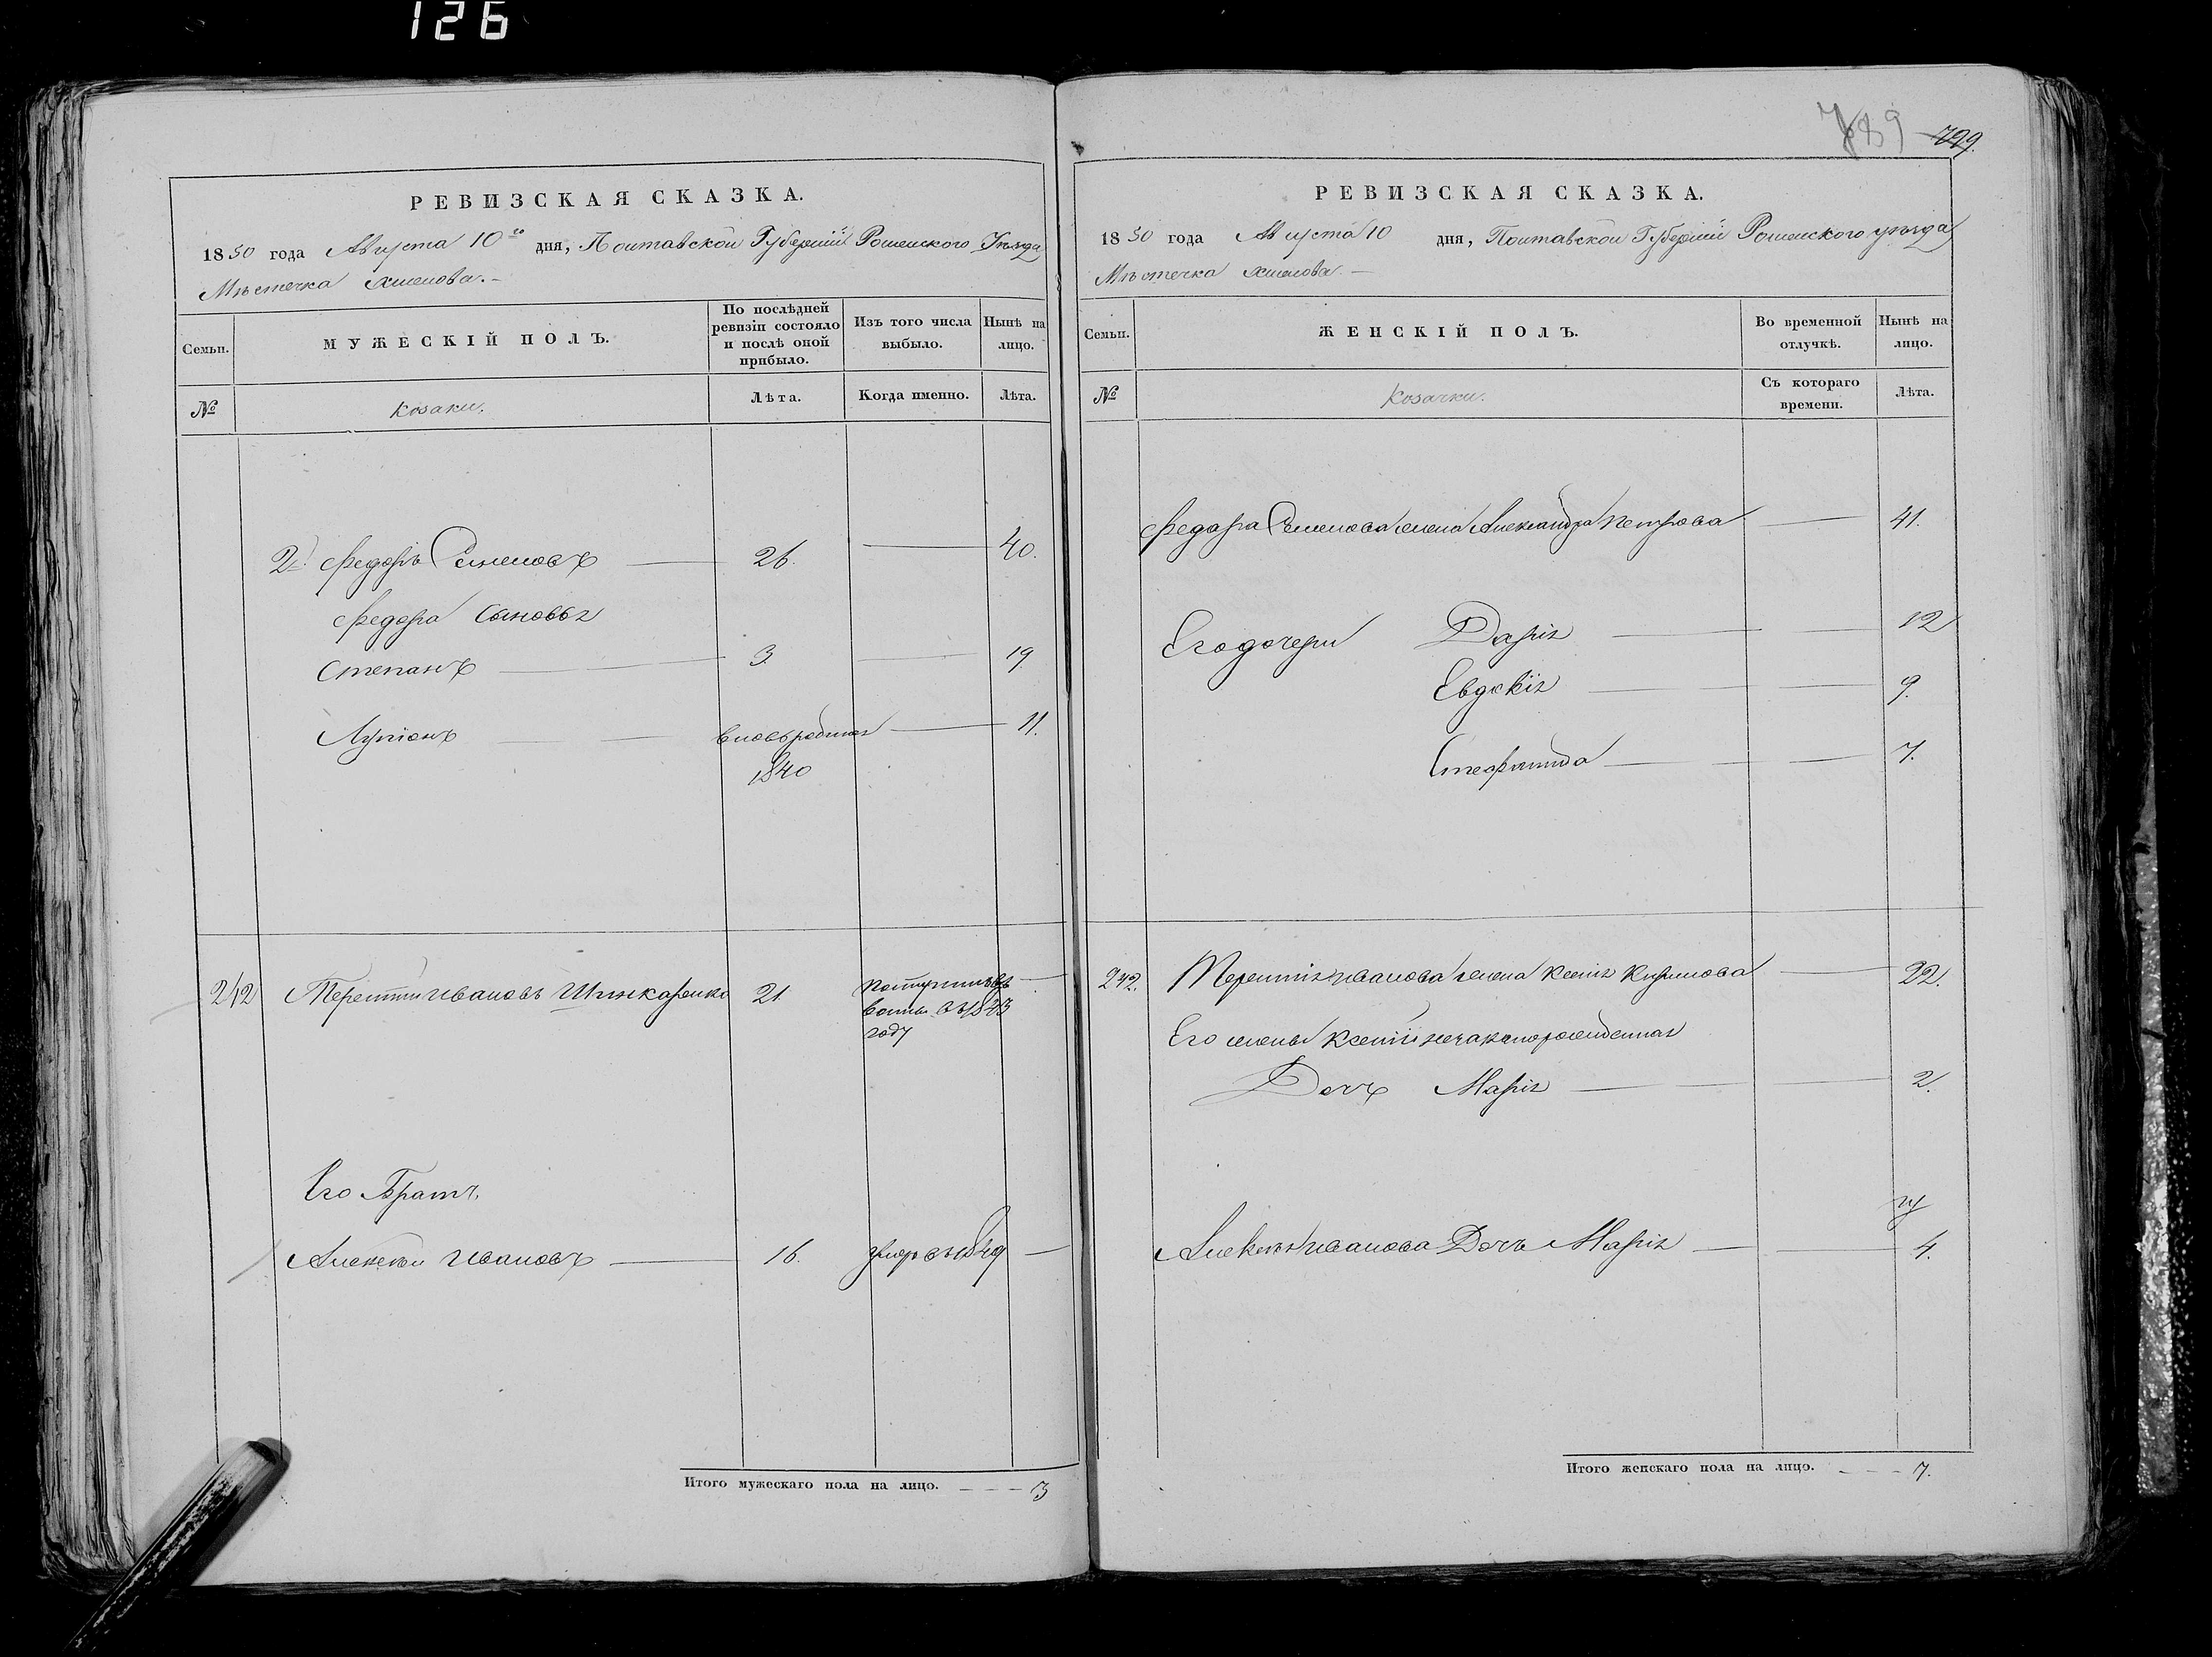 126
789 799.
РЕВИЗСКАЯ СКАЗКА.
1850 года Августа 10го дня, Полтавской Губерніи Роменского Уѣзда
Мѣстечка Хмелова.
Семьи.
МУЖЕСКІЙ ПОЛЪ.
По послѣдней ревизіи состояло и послѣ оной прибыло.
Изъ того числа выбыло.
Нынѣ на лицо.
№
козаки.
Лѣта.
Когда именно.
Лѣта.
2й Федоръ Семеновъ 26. 40.
Федора Сыновья
Степанъ 3. 19
Лукіянъ вновьрожден 11.
1840
242 Терентій Ивановъ Шинкаренко 21.
въ 1843
году
Его Братъ
Алексѣй Ивановъ 16. умеръ въ 1849
Итого мужескаго пола на лицо. 3
РЕВИЗСКАЯ СКАЗКА.
1850 года Августа 10 дня, Полтавской Губерніи Роменского уѣзда
Мѣстечка Хмелова.
Семьи.
ЖЕНСКІЙ ПОЛЪ.
Во временной отлучкѣ.
Нынѣ на лицо.
№
Козачки.
Съ котораго времени.
Лѣта.
Федора Семенова жена Александра Петрова 41.
Его дочери Дарія 12
Евдокія 9.
Степанида 7.
242. Терентія Иванова жена Ксенія Кирилова 22.
Его жены Ксеніи незаконорожденная
Дочь Марія 2.
Алексѣя Иванова Дочь Марія 4.
Итого женскаго пола на лицо. 7.